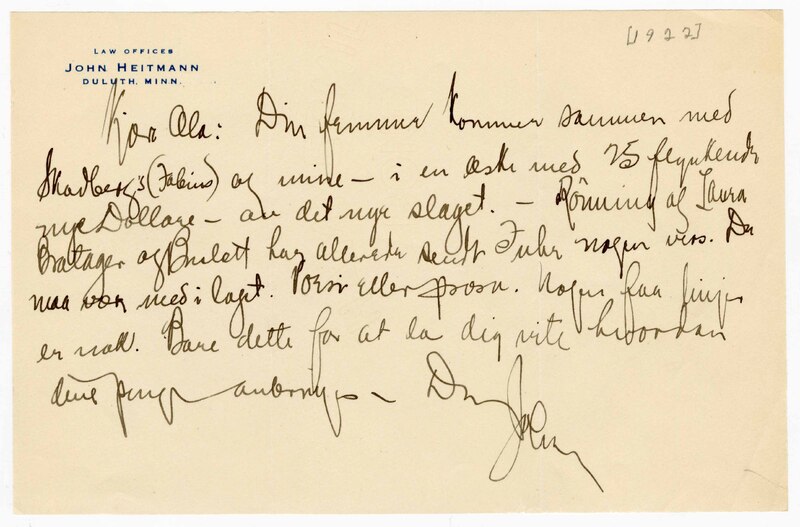 [1922]
LAW OFFICES
JOHN HEITMANN
DULUTH, MINN.
Kjære Ola: Din femmer kommer sammen med
Skadberg's (Fabius) og mine – i en æske med 25 flyukende
nye Dollare – av det nye slaget. – Rönning og Laura
Bratager og Bulett har allerede sendt Fuhr nogen vers. Du
maa være med i laget. Poesi eller prosa. Nogen faa linjer
er nok. Bare dette for at la dig vite hvordan
dine penge anbringes – Din
John